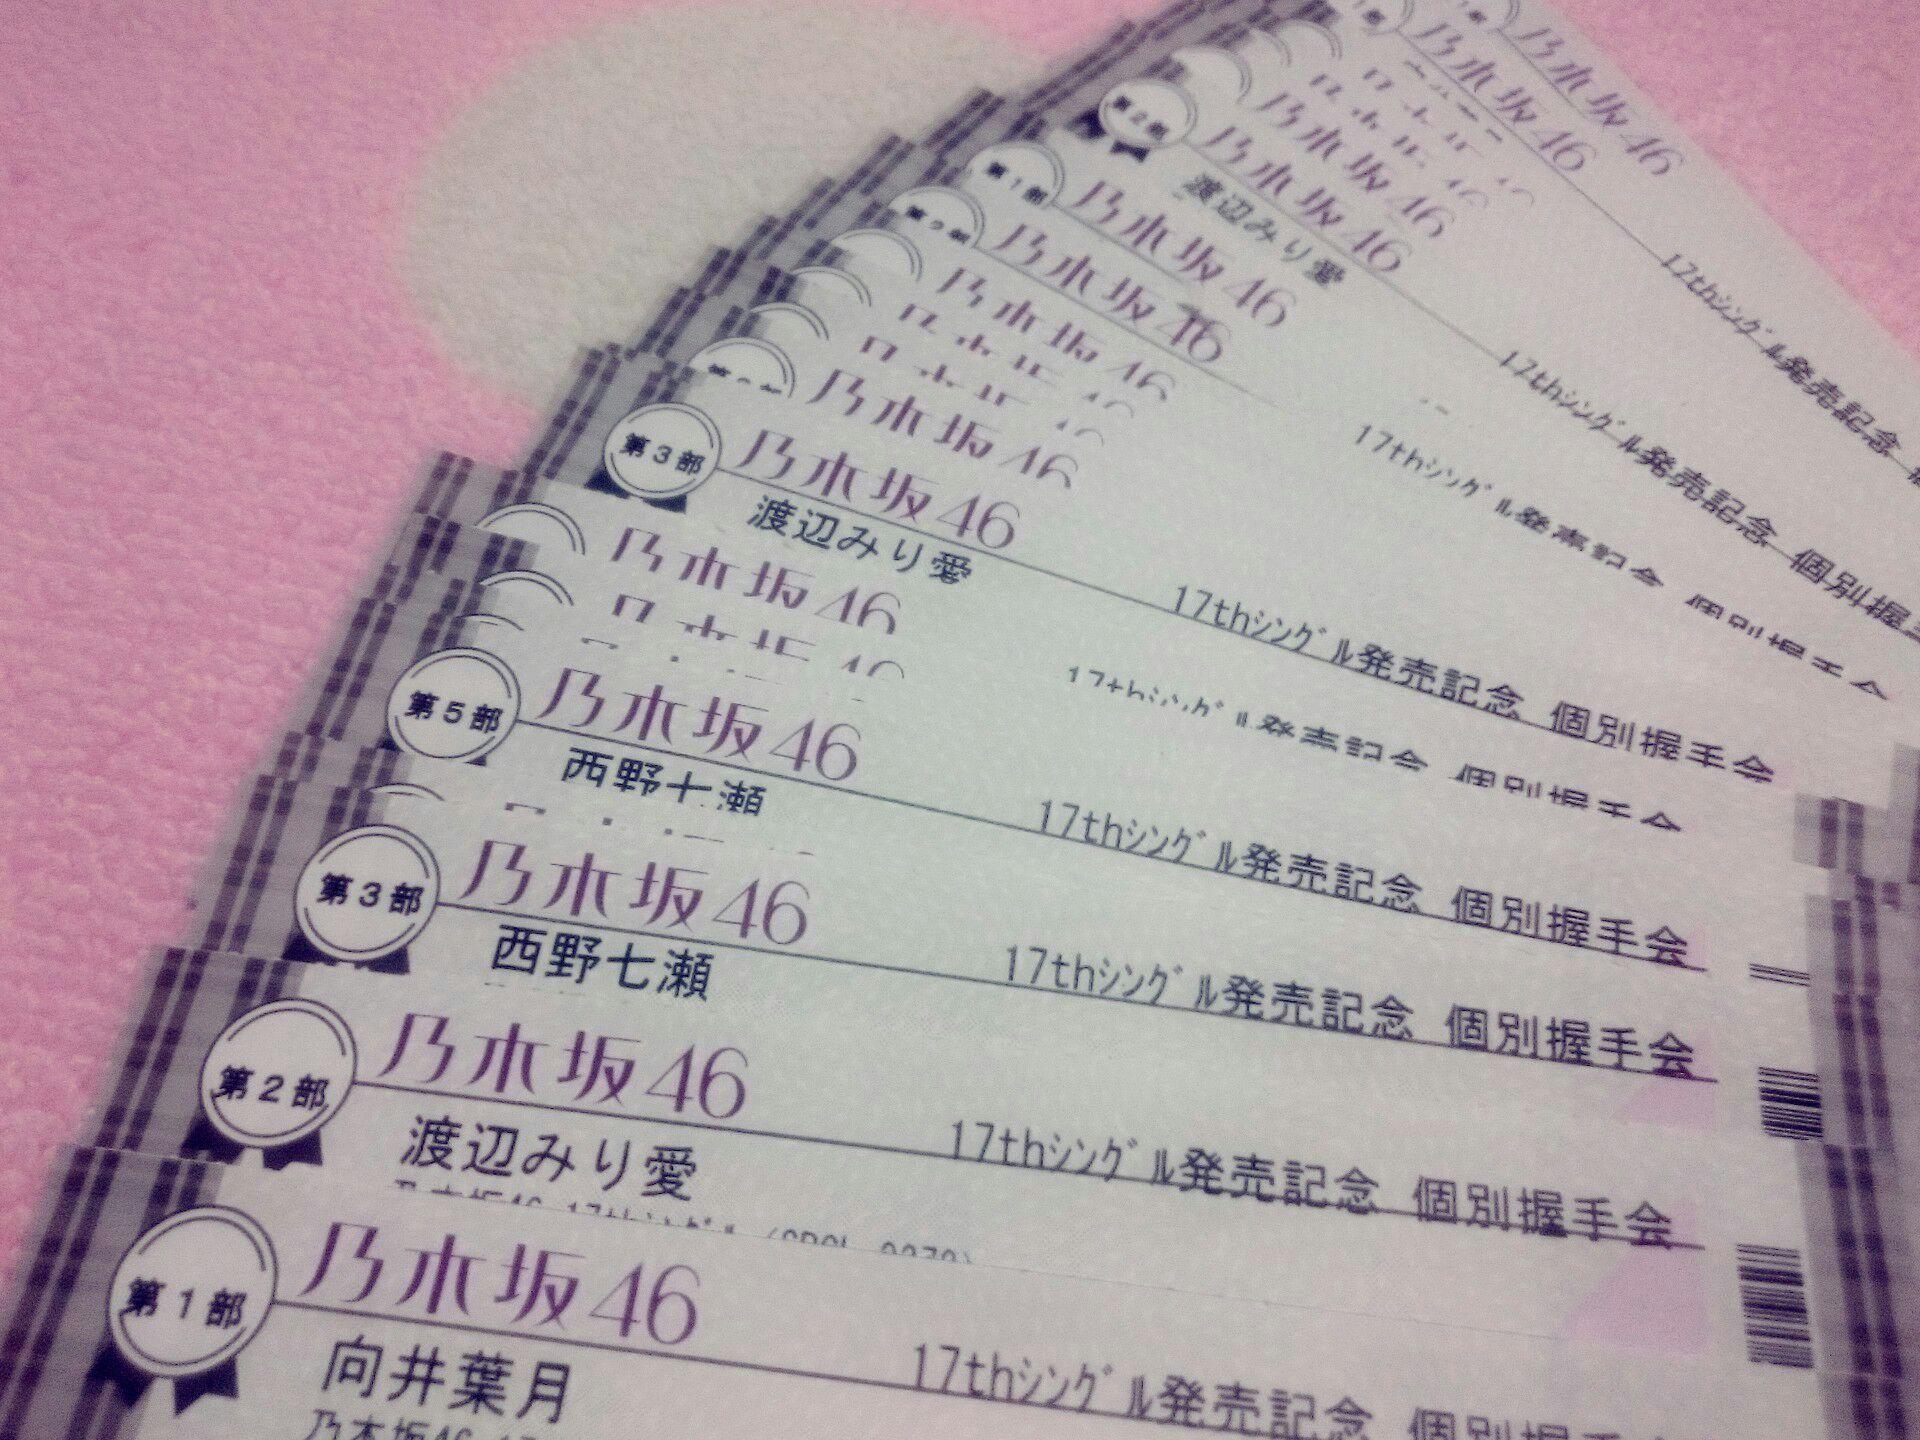 乃木坂46
乃木坂46
17thシングル発売記念
乃木坂46
乃木坂46
第2部
渡辺みり愛
17thシングル発売記念 個別握
第1部
乃木坂46
乃木坂46
17thシングル発売記念 個別握手会
乃木坂46
乃木坂46
第3部
乃木坂46
渡辺みり愛
17thシングル発売記念 個別握手会
乃木坂46
17thシングル発売記念 個別握手会
第5部
乃木坂46
西野七瀬
17thシングル発売記念 個別握手会
第3部
乃木坂46
西野七瀬
17thシングル発売記念 個別握手会
第2部
乃木坂46
渡辺みり愛
17thシングル発売記念 個別握手会
乃木坂46 17thシングル
第1部
乃木坂46
向井葉月
17thシングル発売記念 個別握手会
乃木坂46